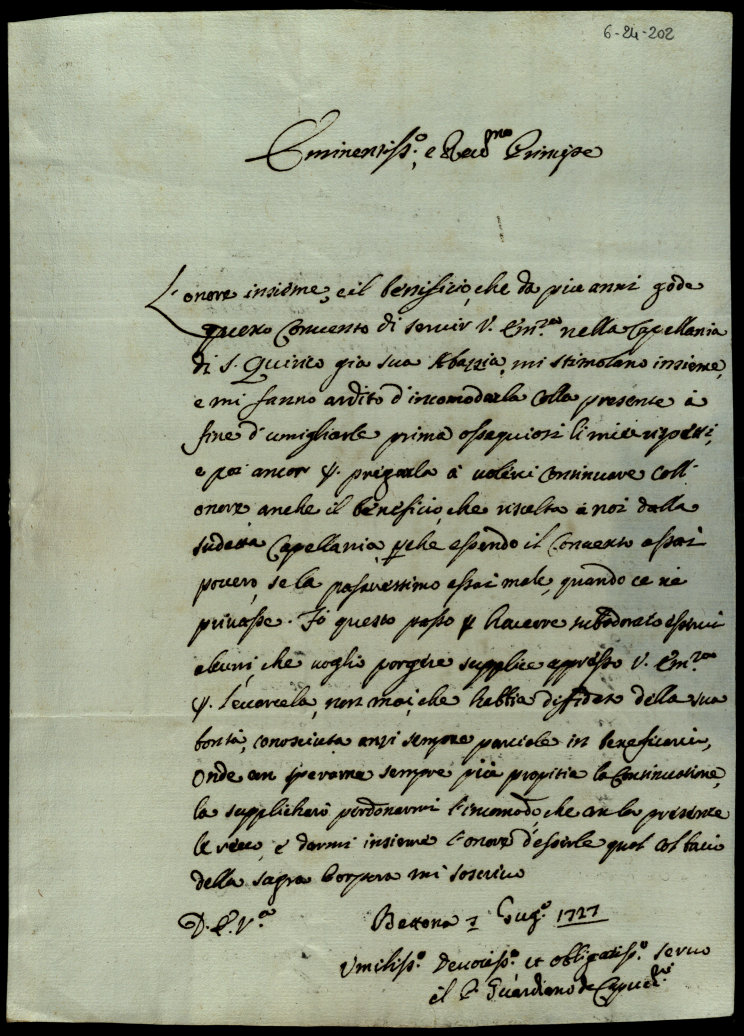 6-24-202
Eminentiss.º e Reu.mo Principe
L'onore insieme, e il benificio, che da piu anni gode
questo Conuento di seruir V. Em.za nella Capellania
di S. Quirico gia sua Abazzia, mi stimolano insieme,
e mi fanno ardito d'incomodarla colla presente à
fine d'umigliarle prima ossequiosi li miei rispetti,
e poi ancor p. pregarla à volerci continuare coll'
onore anche il beneficio, che risulta à noi dalla
sudetta Capellania, perche essendo il Conuento assai
pouero, se la passaressimo assai male, quando ce ne
priuasse. Fò questo passo p hauerne subodorato esserui
alcuni, che voglio porgere supplice appresso V. Em.za
p. leuarcela, non mai, che habbia diffidato della sua
bontà, conosciuta anzi sempre parziale in beneficarci,
Onde con sperarne sempre più propitia la Continuatione,
la supplicherò perdonarmi l'incomodo, che con la presente
le reco, e darmi insieme l'onore d'esserle qual col bacio
della sagra Porpora mi soscriuo
D. E. V.a Bettona 7 Giug.º 1727
Vmiliss.º Deuotiss.º et obligatiss.º seruo
il P. Guardiano de Capuc.ni